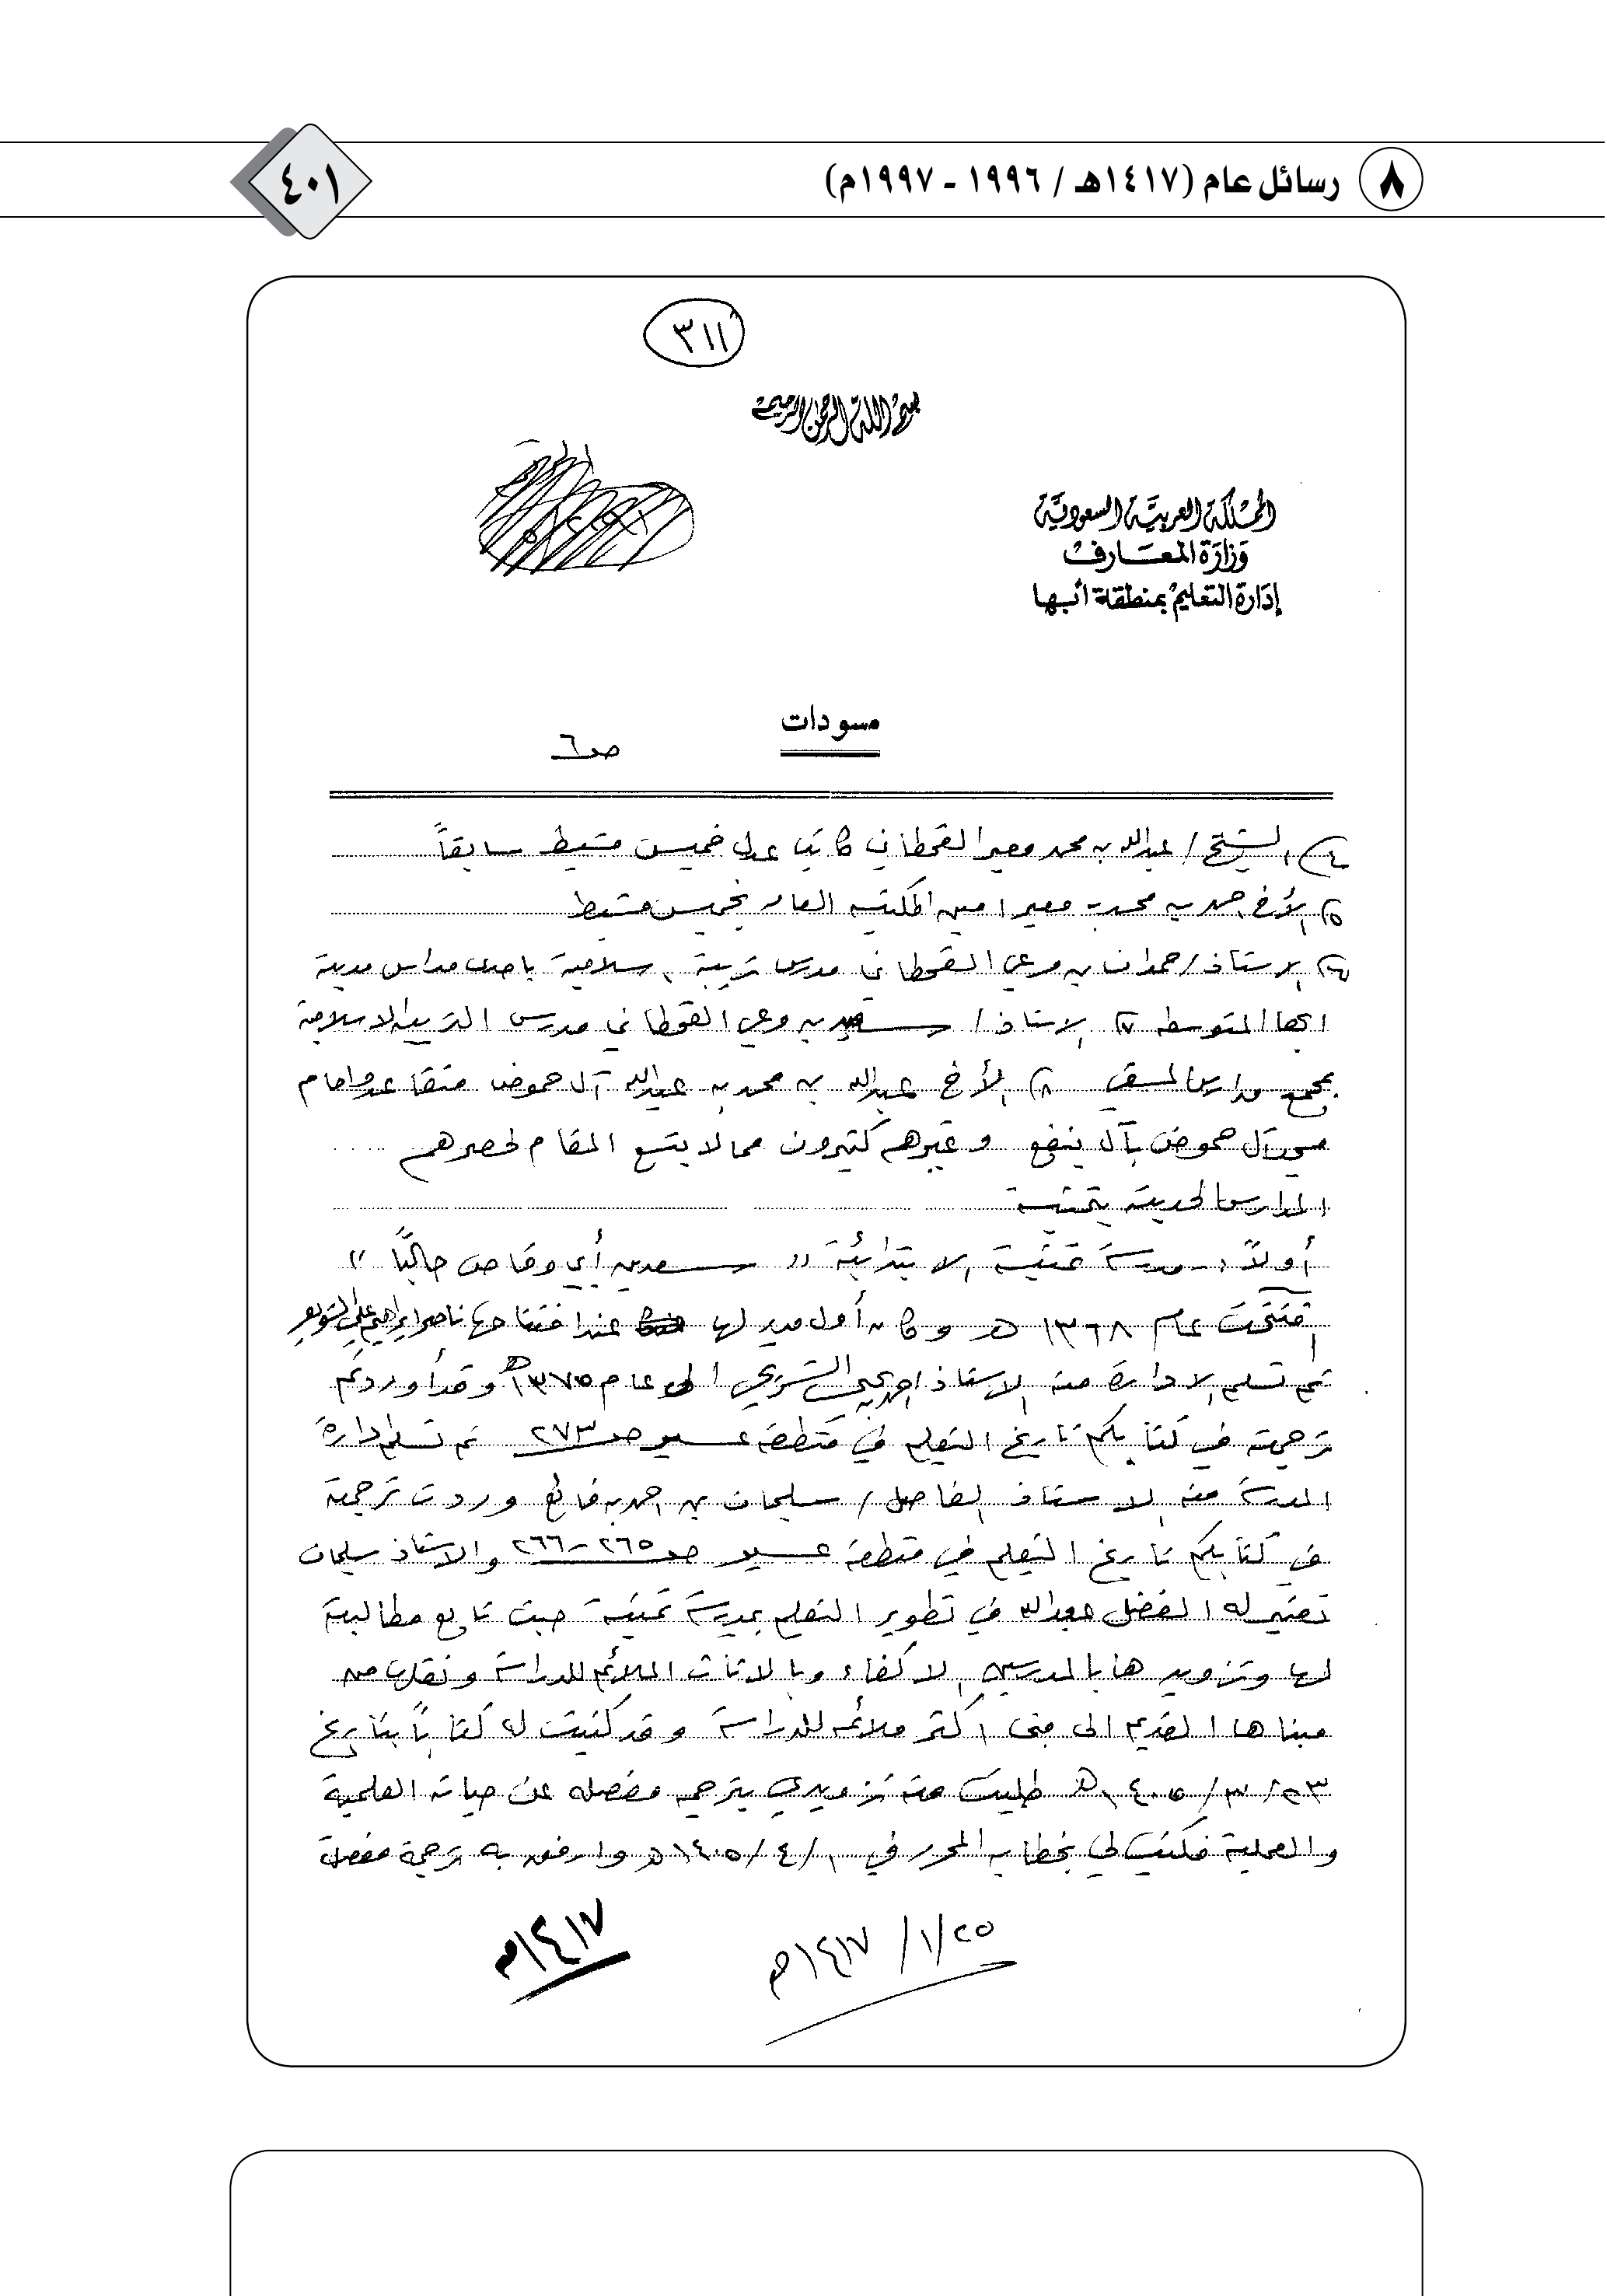 ٨ رسائل عام (١٤١٧هـ / ١٩٩٦ - ١٩٩٧م)
٤٠١
٣١١
بسم الله الرحمن الرحيم
المملكة العربية السعودية
وزارة المعارف
إدارة التعليم بمنطقة أبها
مسودات
صـ٦
٤) الشيخ / عبدالله بن محمد معبر القحطاني كاتب عدل خميس مشيط سابقاً
٥) الأخ احمد بن محمد بن معبر امين المكتبة العامه بخميس مشيط
٦) الاستاذ / حمدان بن مرعي القحطاني مدرس تربية اسلامية باحدى مدارس مدينة
ابها المتوسطه ٧) الاستاذ / سعيد بن مرعي القحطاني مدرس التربيه الاسلامية
بمجمع مدارس المسقي ٨) الأخ عبدالله بن محمد بن عبدالله آل حموض متقاعد وامام
مسجد آل حموض بآل ينفع وغيرهم كثيرون مما لا يتسع المقام لحصرهم ....
المدارس الحديثة بتمنية
أولاً :- مدرسة تمنية الابتدائية " سعد بن أبي وقاص حالياً "
افتتحت عام ١٣٦٨ هـ وكان أول مدير لها عند افتتاحها ناصر ابراهيم علي الشويعر
ثم تسلم الادارة منه الاستاذ احمد بن يحيى الشريحي الى عام ١٣٧٥هـ وقد أوردتم
ترجمته في كتابكم تاريخ التعليم في منطقة عسير صـ ٢٧٣ ثم تسلم ادارة
المدرسة منه الاستاذ الفاضل / سليمان بن احمد بن فائع وردت ترجمته
في كتابكم تاريخ التعليم في منطقة عسير صـ ٢٦٥-٢٦٦ والاستاذ سليمان
تعتبر له الفضل بعدالله في تطوير التعليم بمدرسة تمنية حيث تابع مطالبته
لها وتزويدها بالمدرسين الاكفاء وبالاثاث الملائم للدراسة ونقلها من
مبناها القديم الى مبنى اكثر ملائمه للدراسة وقد كتبت له كتاباً بتاريخ
٢٣/٣/١٤٠٥هـ طلبت منه تزويدي بترجمه مفصله عن حياته العلمية
والعملية فكتب لي بخطابه المحرر في ١/٤/١٤٠٥هـ وارفق به ترجمة مفصلة
٢٥/١/١٤١٧هـ
١٤١٧هـ